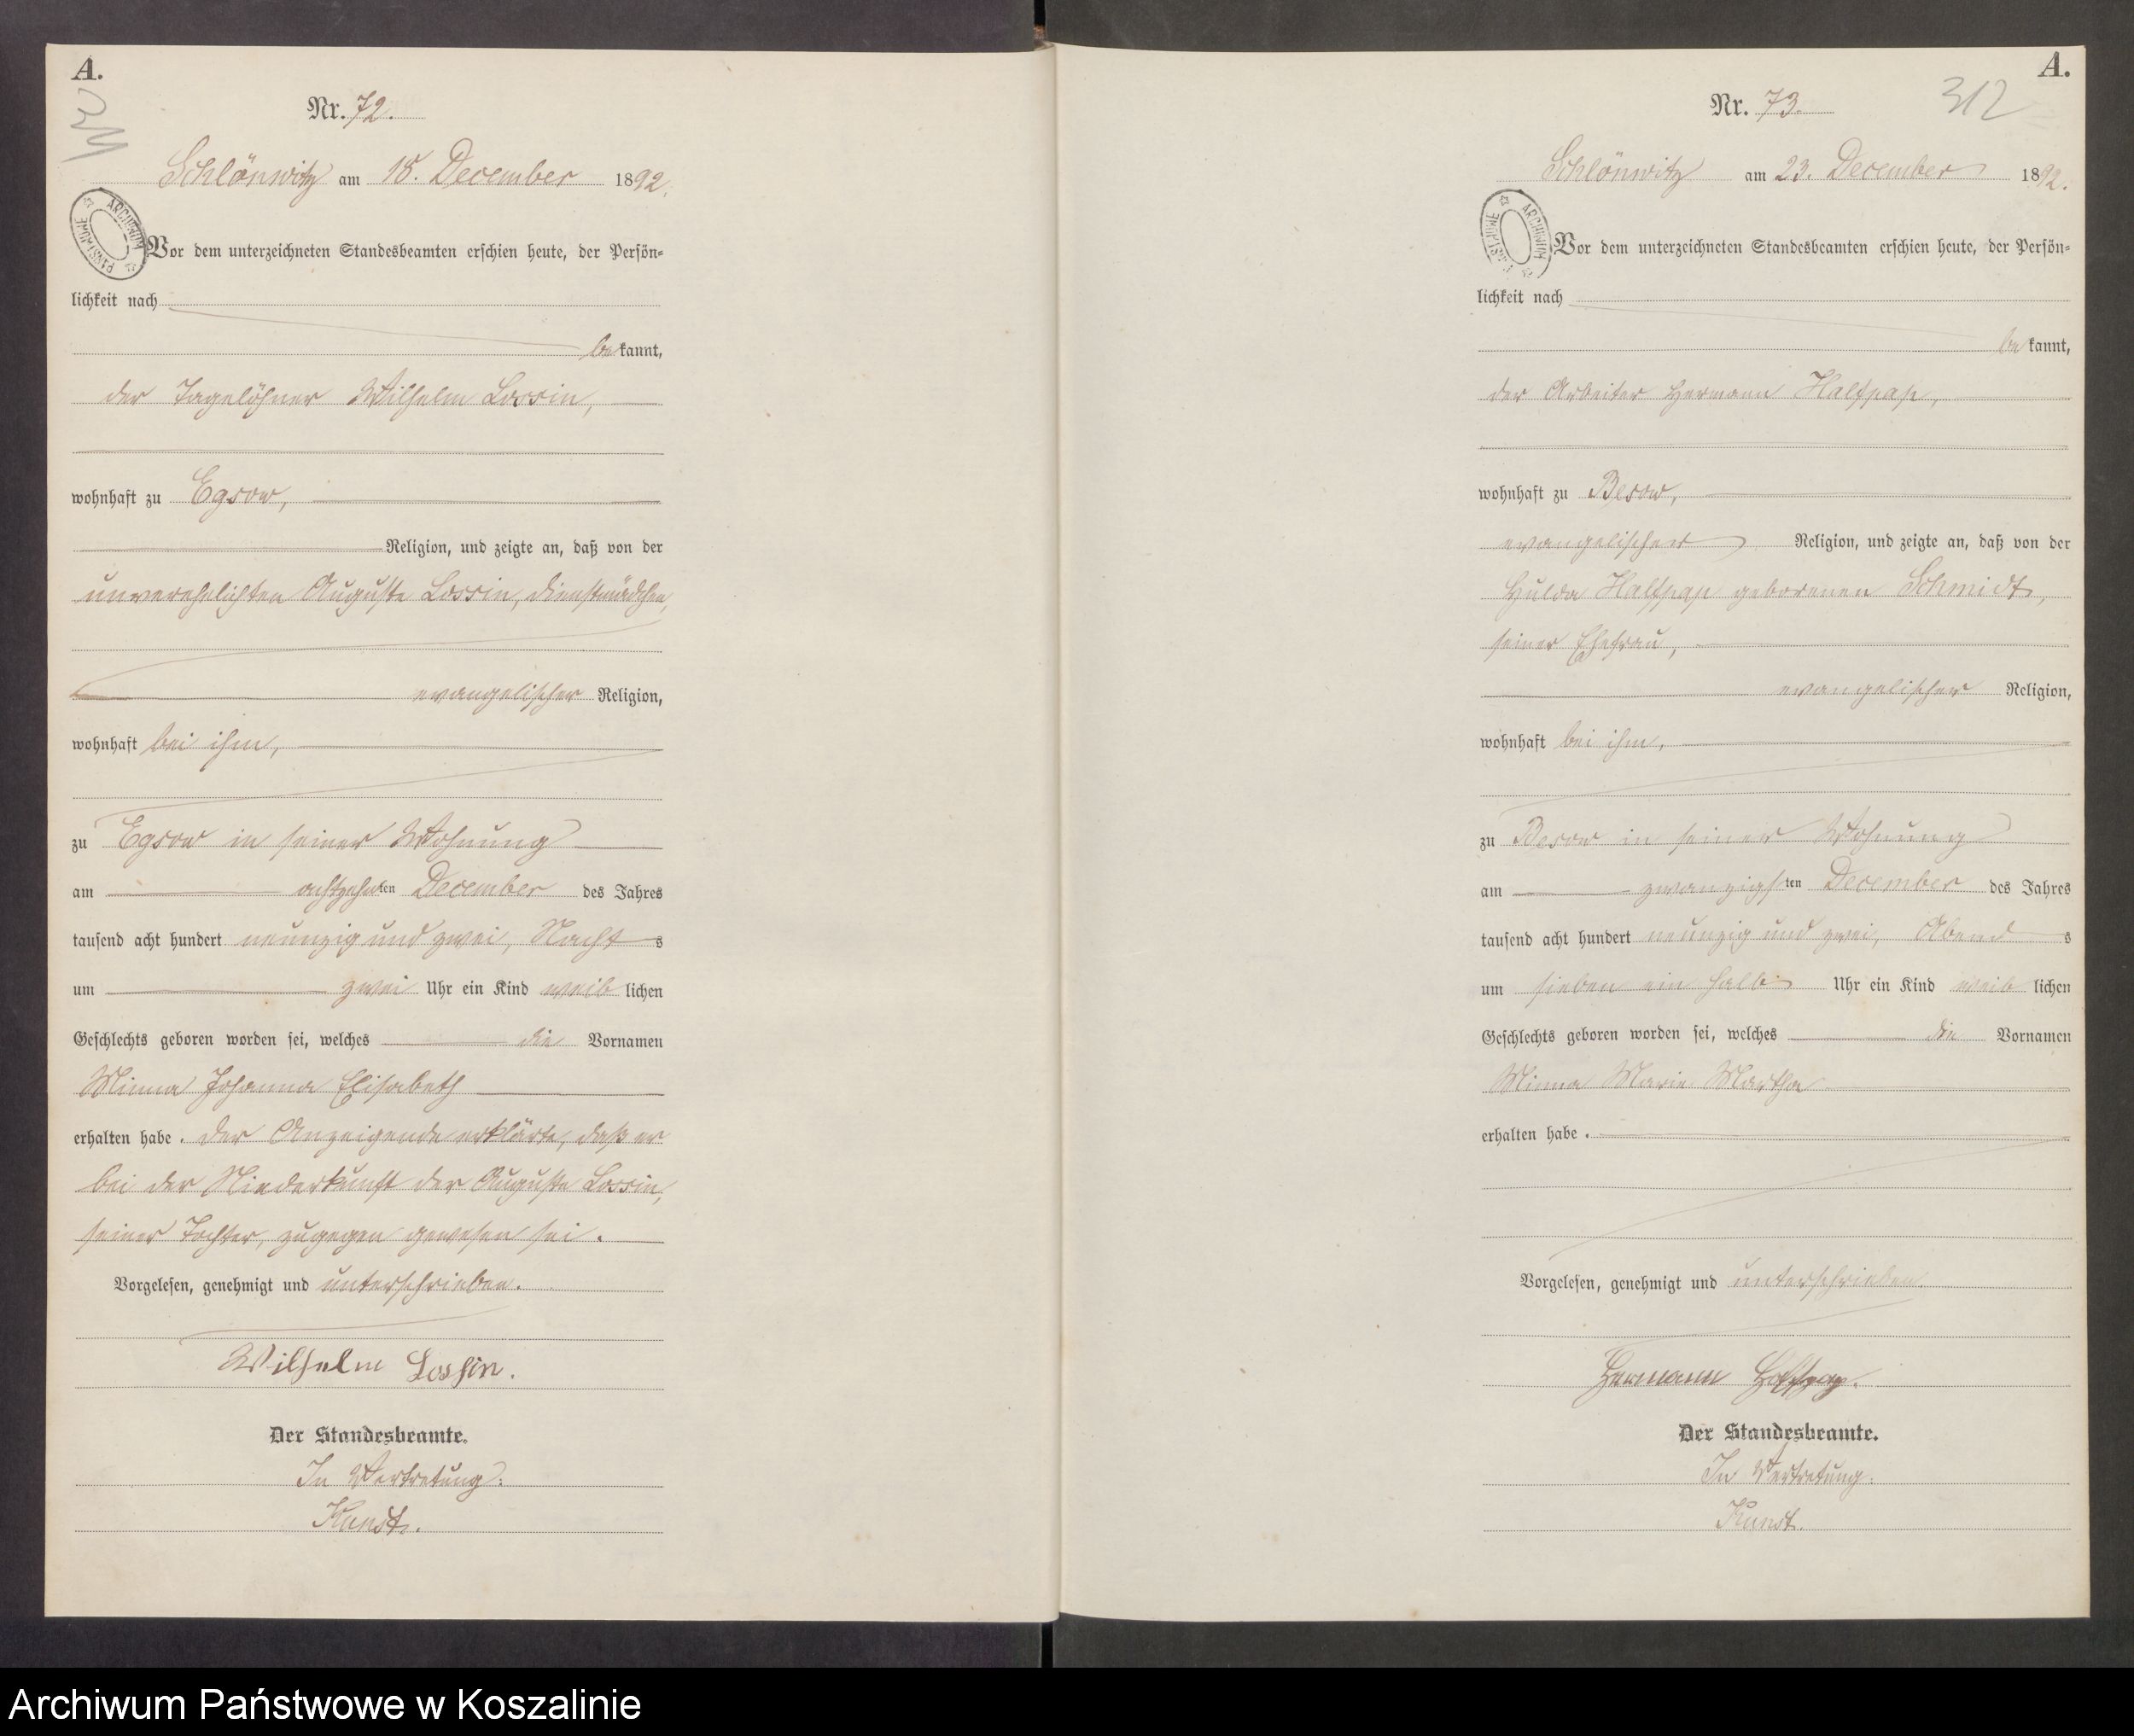 A.
Nr. 72.
Schlönwitz am 18. December 1892.
ARCHIWUM PAŃSTWOWE
Vor dem unterzeichneten Standesbeamten erschien heute, der Persön-
lichkeit nach
bekannt,
der Tagelöhner Wilhelm Lossin,
wohnhaft zu Egsow,
Religion, und zeigte an, daß von der
unverehelichten Auguste Lossin, Dienstmädchen,
evangelischer Religion,
wohnhaft bei ihm,
zu Egsow in seiner Wohnung
am achtzehnten December des Jahres
tausend acht hundert neunzig und zwei, Nachts
um zwei Uhr ein Kind weiblichen
Geschlechts geboren worden sei, welches die Vornamen
Minna Johanna Elisabeth
erhalten habe. Der Anzeigende erklärte, daß er
bei der Niederkunft der Auguste Lossin,
seiner Tochter, zugegen gewesen sei.
Vorgelesen, genehmigt und unterschrieben.
Wilhelm Lossin.
Der Standesbeamte.
In Vertretung:
Kunst.
A.
312
Nr. 73.
Schlönwitz am 23. December 1892.
ARCHIWUM PAŃSTWOWE
Vor dem unterzeichneten Standesbeamten erschien heute, der Persön-
lichkeit nach
bekannt,
der Arbeiter Hermann Halfpap,
wohnhaft zu Besow,
evangelischer Religion, und zeigte an, daß von der
Hulda Halfpap geborenen Schmidt,
seiner Ehefrau,
evangelischer Religion,
wohnhaft bei ihm,
zu Besow in seiner Wohnung
am zwanzigsten December des Jahres
tausend acht hundert neunzig und zwei, Abends
um sieben ein halb Uhr ein Kind weiblichen
Geschlechts geboren worden sei, welches die Vornamen
Minna Marie Martha
erhalten habe.
Vorgelesen, genehmigt und unterschrieben
Hermann Halfpap.
Der Standesbeamte.
In Vertretung:
Kunst.
Archiwum Państwowe w Koszalinie